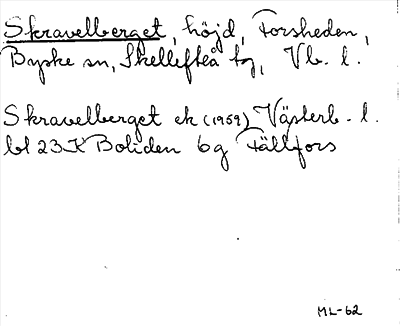 Skravelberget, höjd, Forsheden,
Byske sn, Skellefteå tg, Vb. l.
Skravelberget ek (1959) Västerb. l.
bl 23 K Boliden 6g Fällfors
ML-62